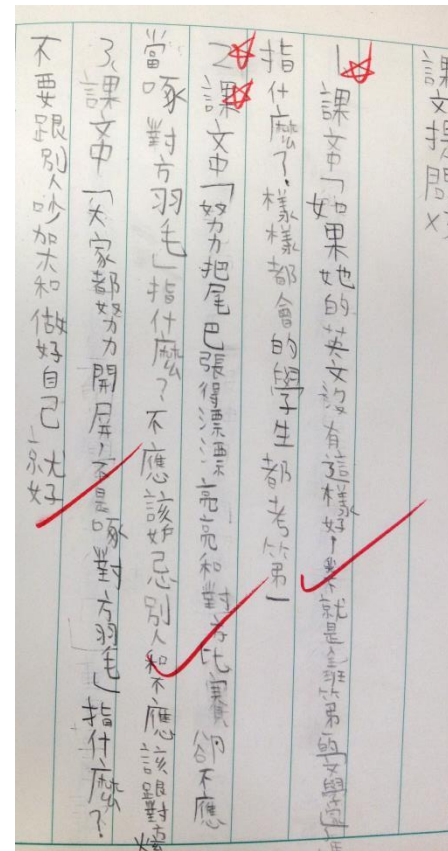 課文提問×3
1.課文中「如果她的英文沒有這樣好,我就是全班第一的
指什麼了.樣樣都會的學生都考第一
2.課文中「努力把尾巴張得漂漂亮亮和對方比賽卻不應
當啄對方羽毛」指什麼?不應該妒忌別人和不應該跟對方
3、課文中「大家都努力開屏,而不是啄對方羽毛」指什麼?
不要跟別人吵架木和做好自己就好